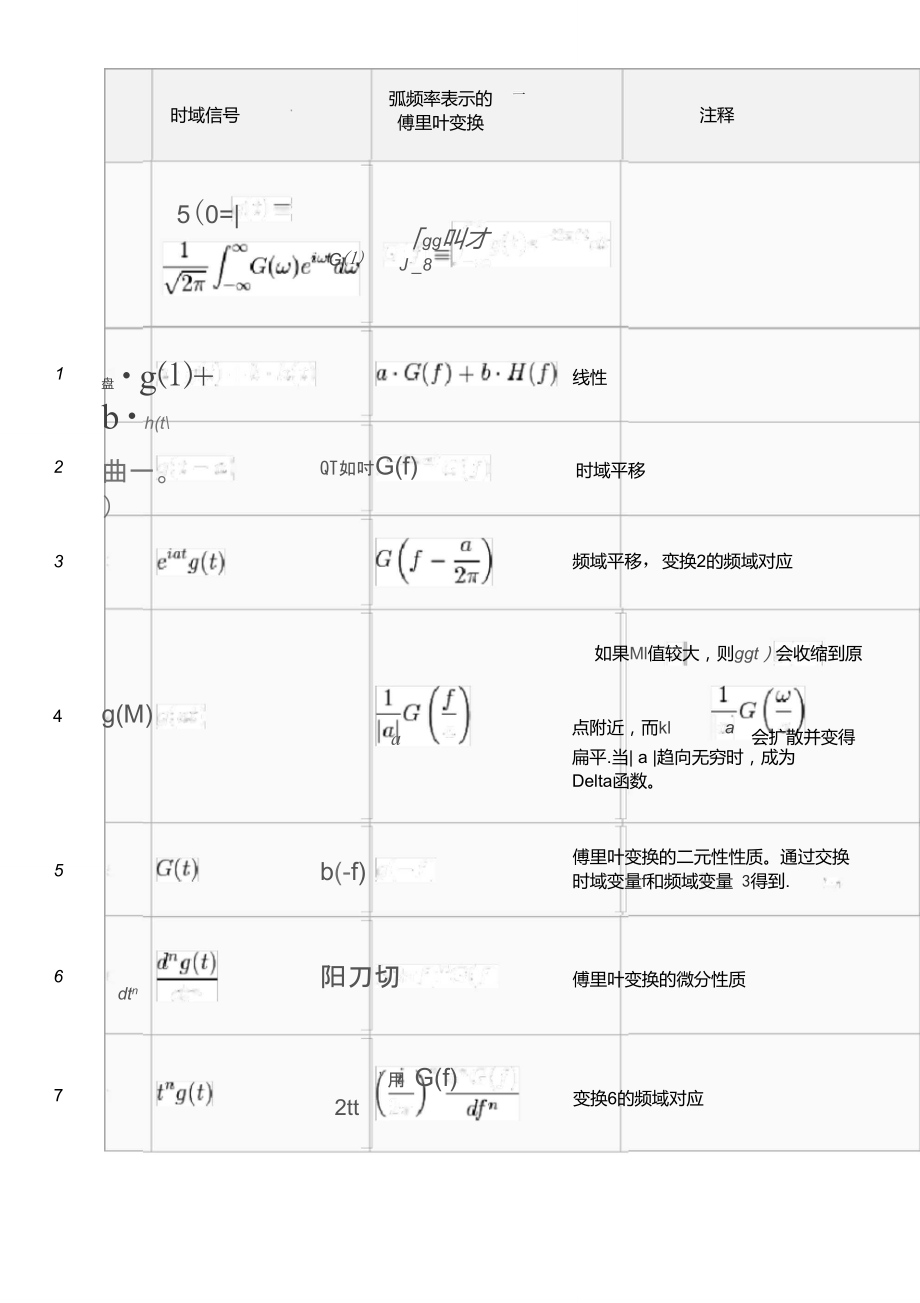 时域信号
弧频率表示的
傅里叶变换
注释
5（0=|
\frac{1}{\sqrt{2\pi}} \int_{-\infty}^{\infty} G(\omega)e^{i\omega t} d\omega
「gg叫才
J_8≡
1
盘•g(1)+
b•h(t\
a · G(f) + b · H(f)
线性
2
曲一。
)
QT如吋G(f)
时域平移
3
e^{iat} g(t)
G(f − \frac{a}{2π})
频域平移，变换2的频域对应
4
g(M)
\frac{1}{|a|} G(\frac{f}{})
a
如果Ml值较大，则ggt）会收缩到原
点附近，而kl
\frac{1}{a} G(\frac{ω}{})
会扩散并变得
扁平.当| a |趋向无穷时，成为
Delta函数。
5
G(t)
b(-f)
傅里叶变换的二元性性质。通过交换
时域变量f和频域变量 3得到.
6
d^n g(t)
dt^n
阳刀切
傅里叶变换的微分性质
7
t^n g(t)
2tt
用 G(f)
df^n
变换6的频域对应